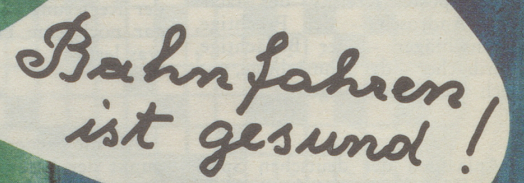 Bahnfahren
ist gesund!